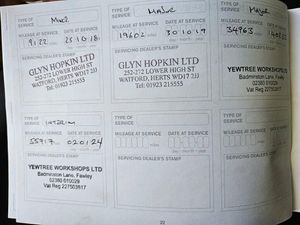 TYPE OF SERVICE
MILEAGE AT SERVICE DATE AT SERVICE
9122 25.10.18
SERVICING DEALER'S STAMP
GLYN HOPKIN LTD
252-272 LOWER HIGH ST
WATFORD, HERTS WD17 2JJ
Tel: 01923 215555
TYPE OF SERVICE Major
MILEAGE AT SERVICE DATE AT SERVICE
19602 30.10.19
SERVICING DEALER'S STAMP
GLYN HOPKIN LTD
252-272 LOWER HIGH ST
WATFORD, HERTS WD17 2JJ
Tel: 01923 215555
TYPE OF SERVICE Major
MILEAGE AT SERVICE DATE AT
34963
SERVICING DEALER'S STAMP
YEWTREE WORKSHOPS LTD
Badminston Lane, Fawley
02380 610029
Vat Reg 227503617
TYPE OF SERVICE Interim
MILEAGE AT SERVICE DATE AT SERVICE
55917 020124
SERVICING DEALER'S STAMP
YEWTREE WORKSHOPS LTD
Badminston Lane, Fawley
02380 610029
Vat Reg 227503617
TYPE OF SERVICE
MILEAGE AT SERVICE DATE AT SERVICE
SERVICING DEALER'S STAMP
TYPE OF SERVICE
MILEAGE AT SERVICE DATE
SERVICING DEALER'S STAMP
22